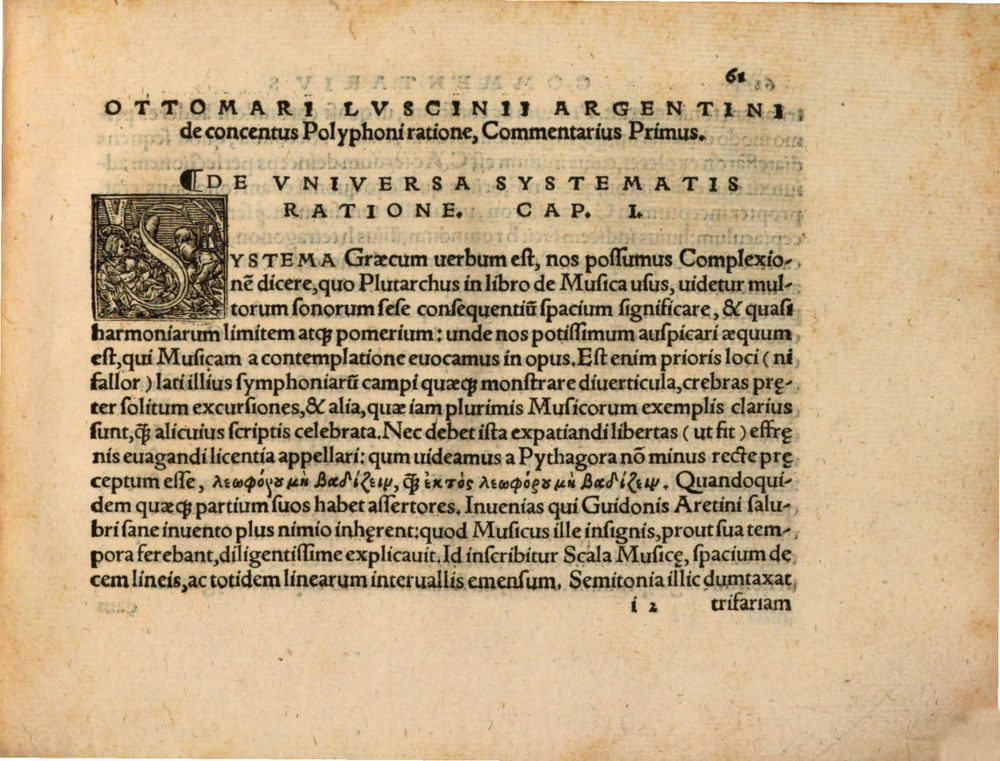 61
OTTOMARI LVSCINII ARGENTINI
de concentus Polyphoni ratione, Commentarius Primus.
¶DE VNIVERSA SYSTEMATIS
RATIONE. CAP. I.
SYSTEMA Græcum uerbum est, nos possumus Complexio-
nẽ dicere, quo Plutarchus in libro de Musica usus, uidetur mul-
torum sonorum sese consequentiũ spacium significare, & quasi
harmoniarum limitem atqꝫ pomerium: unde nos potissimum auspicari æquum
est, qui Musicam a contemplatione euocamus in opus. Est enim prioris loci (ni
fallor) lati illius symphoniarũ campi quæqꝫ monstrare diuerticula, crebras prę-
ter solitum excursiones, & alia, quæ iam plurimis Musicorum exemplis clarius
sunt, qꝫ̃ alicuius scriptis celebrata. Nec debet ista expatiandi libertas (ut fit) effrę
nis euagandi licentia appellari: qum uideamus a Pythagora nõ minus recte prę
ceptum esse, λεωφόρȣ μὴ βαδίζειν, qꝫ̃ ἐκτὸς λεωφόρȣ μὴ βαδίζειν. Quandoqui-
dem quæqꝫ partium suos habet assertores. Inuenias qui Guidonis Aretini salu-
bri sane inuento plus nimio inhęrent: quod Musicus ille insignis, prout sua tem-
pora ferebant, diligentissime explicauit. Id inscribitur Scala Musicę, spacium de
cem lineis, ac totidem linearum interuallis emensum. Semitonia illic dumtaxat
i 2 trifariam